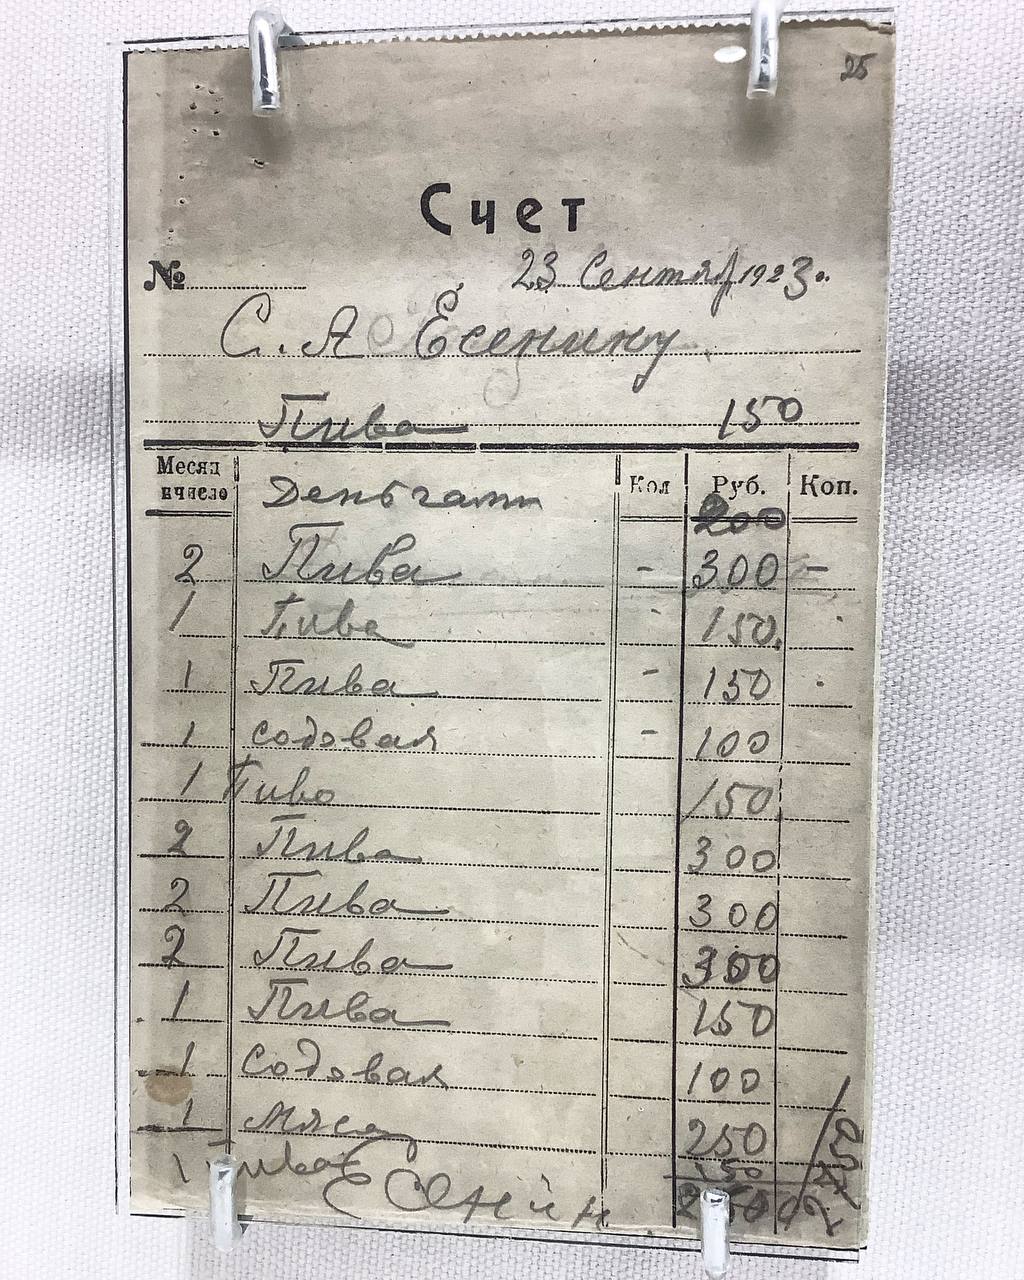 25
Счет
№ 23 Сентяб 1923 г.
С. А Есенину
Пива 150
Месяц и число Деньгами Кол Руб. Коп.
200
2 Пива - 300 -
1 Пива - 150
1 Пива - 150
1 Содовая - 100
1 Пиво 150
2 Пива 300
2 Пива 300
2 Пива 300
1 Пива 150
1 Содовая 100
1 Мяса 250
1 Пива 150
Есенин